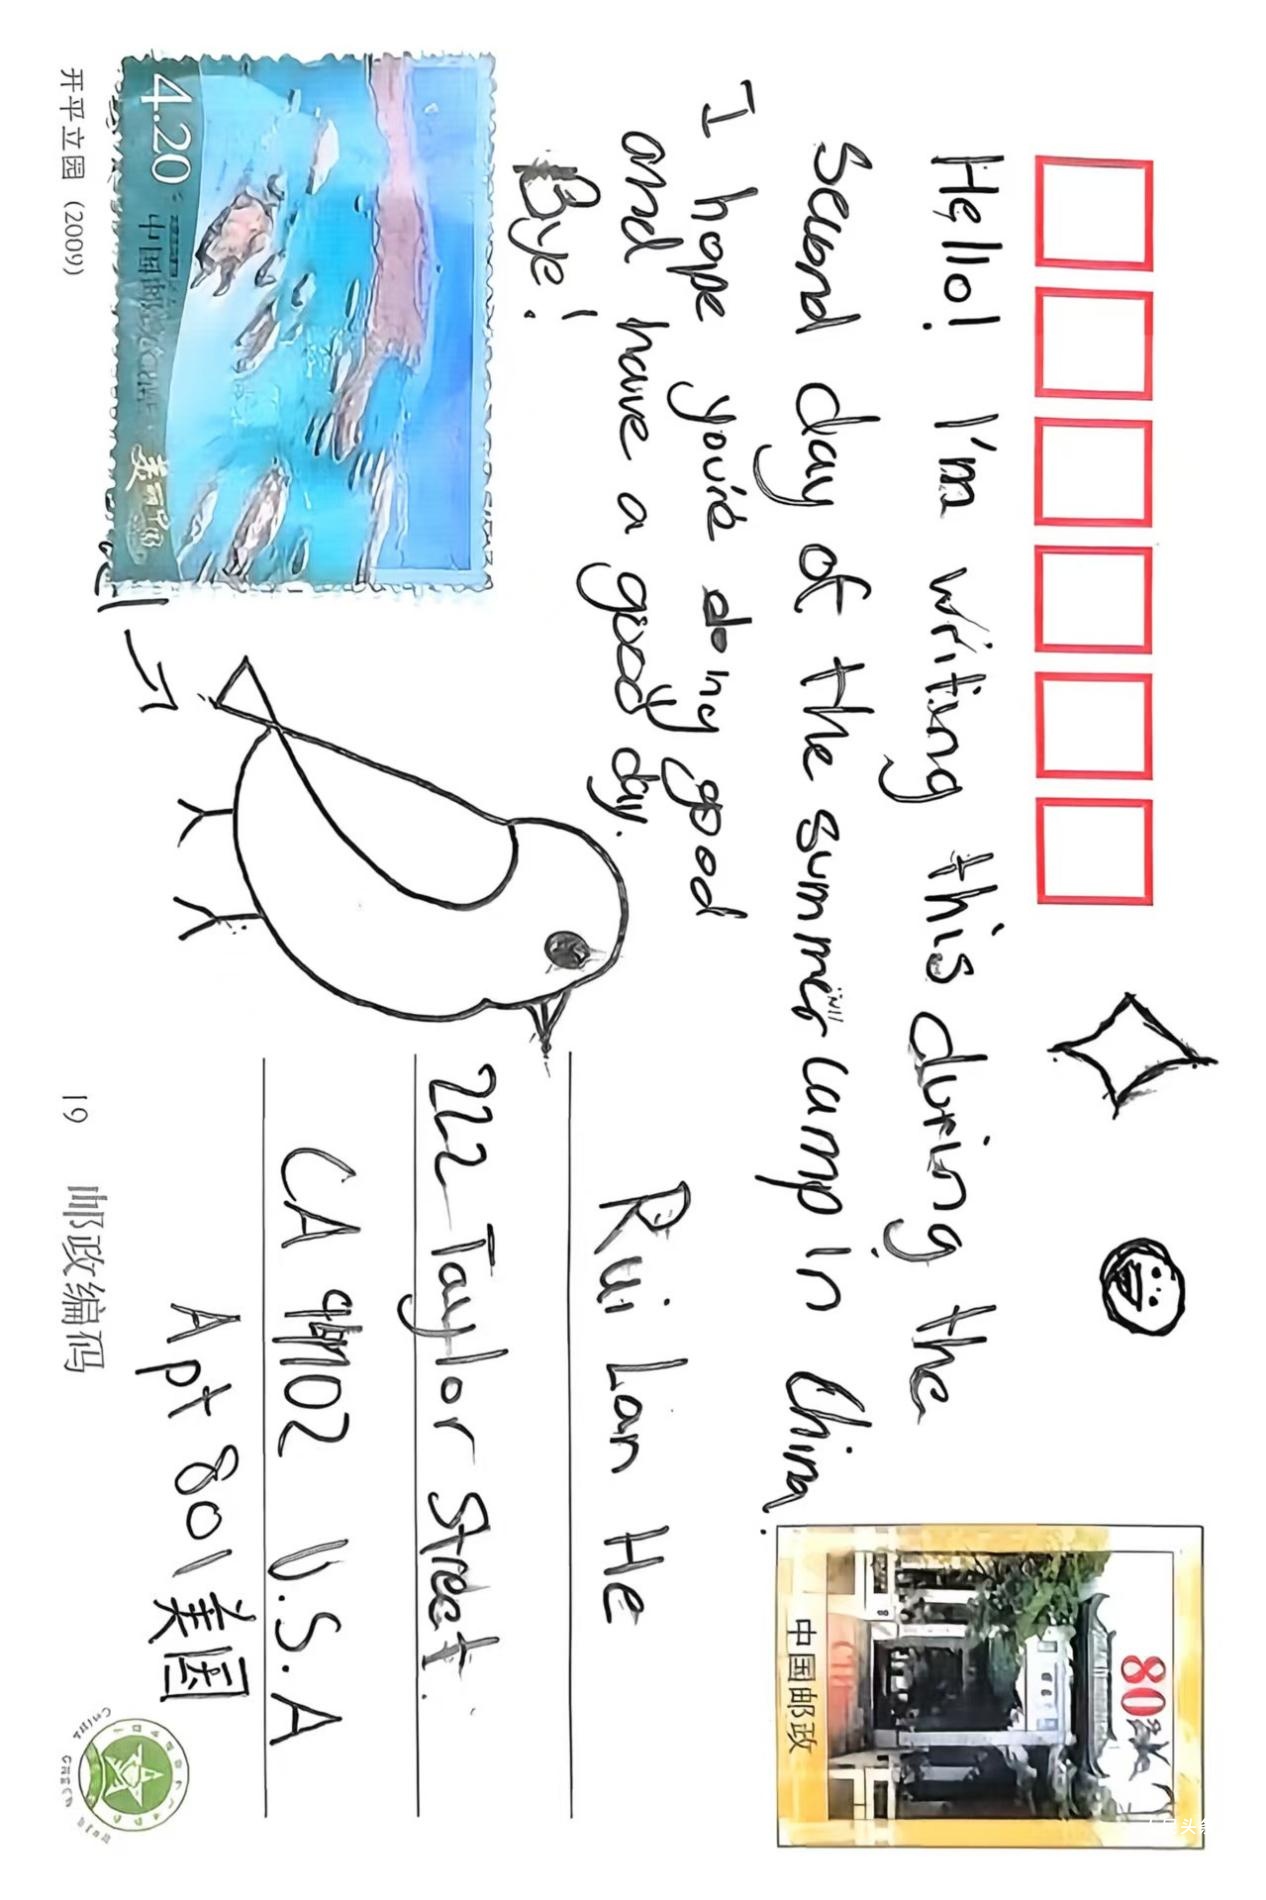 Hello! I'm writing this during the
second day of the summer camp in China.
I hope you're doing good
and have a good day.
Bye!
80
中国邮政
4.20
中国邮
开平立园 (2009)
Rui Lan He
222 Taylor Street.
CA 94102 U.S.A
Apt 801 美国
19
邮政编码